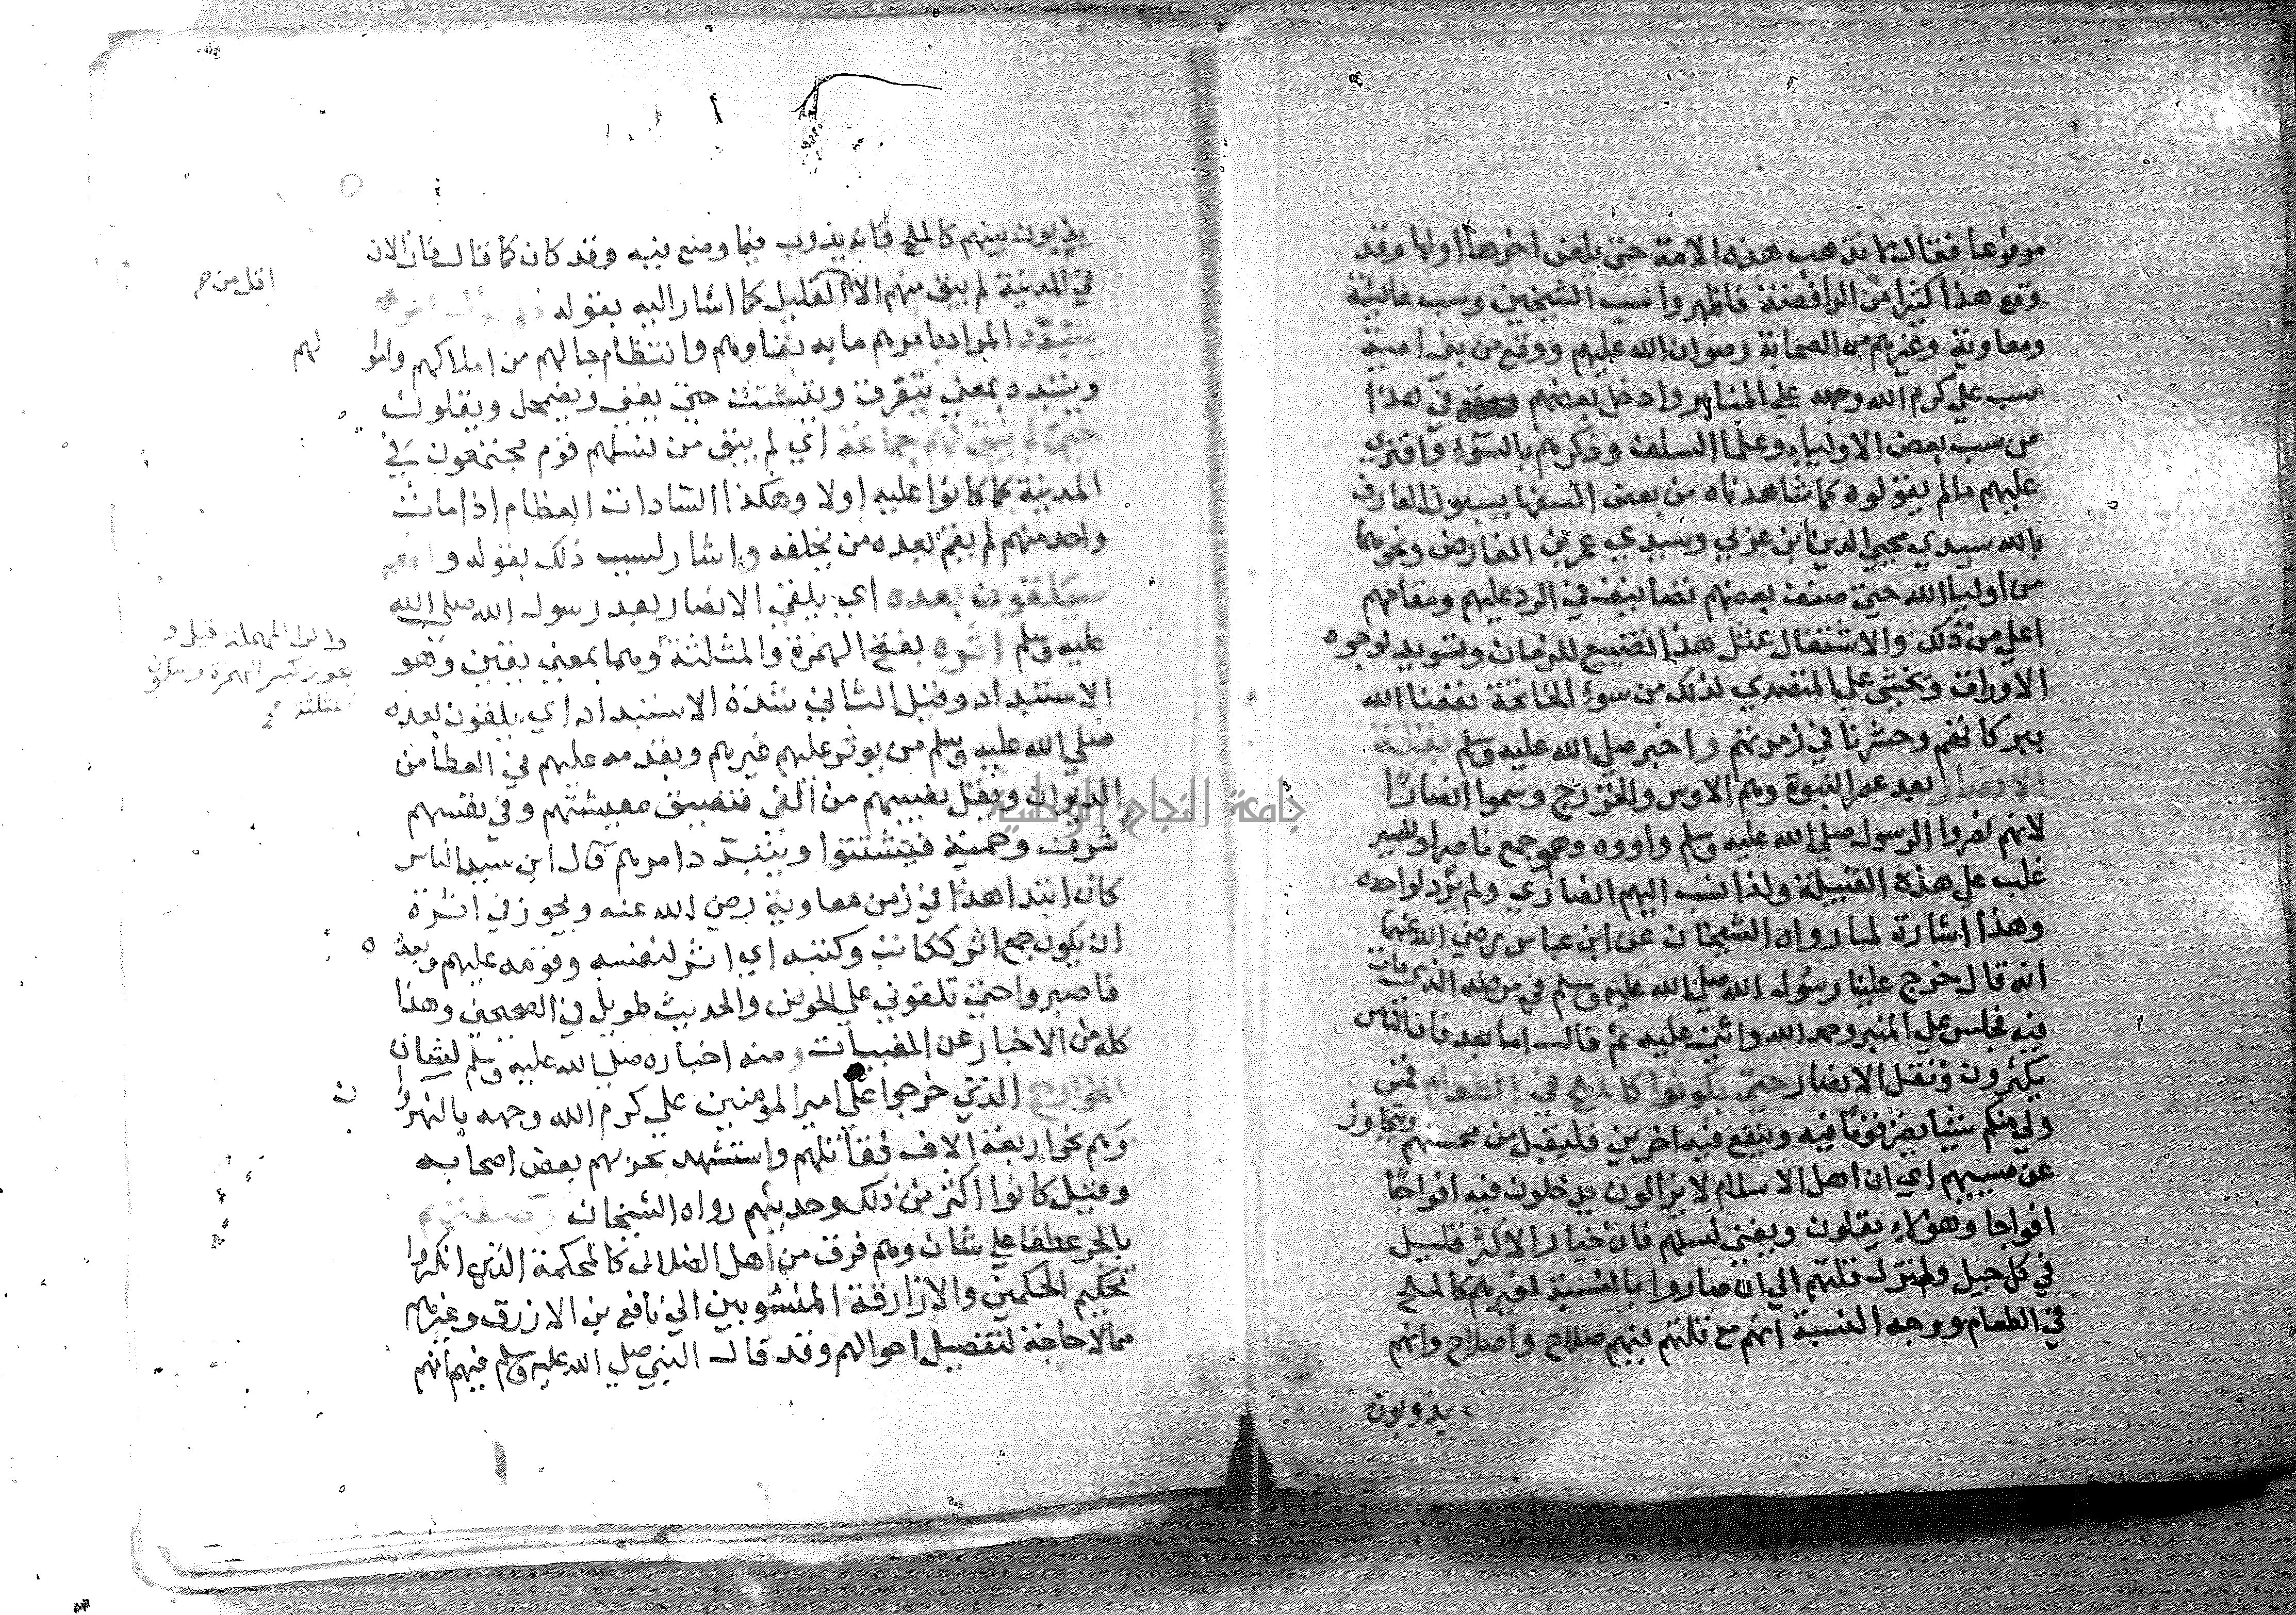 مرفوعا فقال لا تذهب هذه الامة حتى يلعن اخرها اولها وقد
وقع هذا كثيرا من الرافضة فاظهروا سب الشيخين وسب عائشة
ومعاوية وغيرهم من الصحابة رضوان الله عليهم ووقع من بنى امية
سب علي كرم الله وجهه علي المنابر وادخل بعضهم في هذا
من سب بعض الاولياء وعلما السلف وذكرهم بالسوء وافترى
عليهم مالم يقولوه كما شاهدناه من بعض السفها يسبون العارف
بالله سيدي محيي الدين ابن عربي وسيدي عمر بن الفارض ونحوهما
من اوليا الله حتى صنف بعضهم تصانيف في الرد عليهم ومقامهم
اعلى من ذلك والاشتغال بمثل هذا تضييع للزمان وتسويد لوجوه
الاوراق ويخشى علي المتصدي لذلك من سوء الخاتمة نفعنا الله
ببركاتهم وحشرنا في زمرتهم واخبر صلى الله عليه وسلم بقلة
الانصار بعد عصر النبوة وهم الاوس والخزرج وسموا انصارًا
لانهم نصروا الرسول صلى الله عليه وسلم واووه وهو جمع ناصر او نصير
غلب على هذه القبيلة ولذا نسب اليهم انصاري ولم يرد لواحده
وهذا اشارة لما رواه الشيخان عن ابن عباس رضي الله عنهما
انه قال خرج علينا رسول الله صلى الله عليه وسلم في مرضه الذي مات
فيه فجلس على المنبر وحمد الله واثنى عليه ثم قال اما بعد فان الناس
يكثرون وتقل الانصار حتى يكونوا كالملح في الطعام فمن
ولي منكم شيئا يضر قوما فيه وينفع فيه اخرين فليقبل من محسنهم ويتجاوز
عن مسيئهم اي ان اهل الاسلام لا يزالون يدخلون فيه افواجًا
افواجا وهؤلاء يقلون ويفنى نسلهم فان خيار الاكثر قليل
في كل جيل ولم تزل قلتهم الي ان صاروا بالنسبة لغيرهم كالملح
في الطعام ووجه النسبة انهم مع قلتهم فيهم صلاح واصلاح وانهم
يذوبون
يذوبون بينهم كالملح فانه يذوب فيما وضع فيه وقد كان كما قال فان الان
في المدينة لم يبق منهم الا القليل كما اشار اليه بقوله
اقل من هم
يتبدّد المراد بامرهم ما به بقاوهم وانتظام حالهم من املاكهم وامو
لهم
ويتبدد بمعنى يتفرق ويتشتت حتى يفنى ويضمحل ويقلون
حتى لم يبق لهم جماعة اي لم يبق من نسلهم قوم مجتمعون في
المدينة كما كانوا عليه اولا وهكذا السادات العظام اذا مات
واحد منهم لم يقم بعده من يخلفه واشار لسبب ذلك بقوله وانهم
سيلقون بعده اي يلقى الانصار بعد رسول الله صلى الله
عليه وسلم اثره بفتح الهمزة والمثلثة وهما بمعنى يقين وهو
الاستبداد وقيل الثاني شدة الاستبداد اي يلقون بعده
صلى الله عليه وسلم من يوثر عليهم غيرهم ويقدمه عليهم في العطا من
الديوان ويقل نصيبهم من الفي فتضيق معيشتهم وفي نفسهم
شرف وحمية فيتشتتوا ويتبدّد امرهم قال ابن سيد الناس
كان ابتدا هذا في زمن معاوية رضي الله عنه ويجوز في اثرة
ان يكون جمع اثر ككاتب وكتبه اي اثر لنفسه وقومه عليهم وبعد
ه
فاصبروا حتى تلقوني علي الحوض والحديث طويل في الصحيحين وهذا
كله من الاخبار عن المغيبات ومنه اخباره صلى الله عليه وسلم بشان
الخوارج الذين خرجوا على امير المومنين علي كرم الله وجهه بالنهروا
ن
وهم نحو اربعة الاف فقاتلهم واستشهد بحربهم بعض اصحابه
وقيل كانوا اكثر من ذلك وحديثهم رواه الشيخان وصفتهم
بالجر عطفا علي شان وهم فرق من اهل الضلال كالمحكمة الذين انكروا
تحكيم الحكمين والازارقة المنسوبين الي نافع بن الازرق وغيرهم
مما لا حاجة لتفصيل احوالهم وقد قال النبي صلى الله عليه وسلم فيهم انهم
جامعة النجاح الوطنية